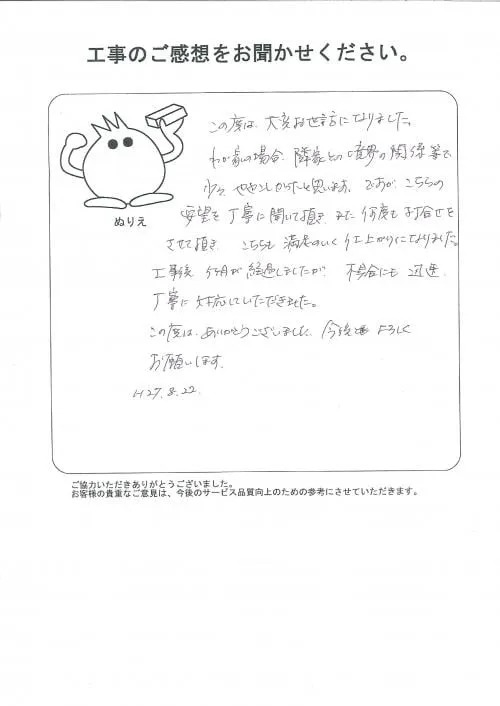 工事のご感想をお聞かせください。
この度は、大変お世話になりました。
わが家の場合、隣家との境界の関係等で
少々ややこしかったと思います。ですが、こちらの
要望を丁寧に聞いて頂き、また何度も打合せを
させて頂き、こちらも満足のいく仕上がりになりました。
工事後、ヶ月が経過しましたが、不具合にも迅速、
丁寧に対応していただきました。
この度は、ありがとうございました。今後も よろしく
お願いします。
H27.8.22.
ぬりえ
ご協力いただきありがとうございました。
お客様の貴重なご意見は、今後のサービス品質向上のための参考にさせていただきます。